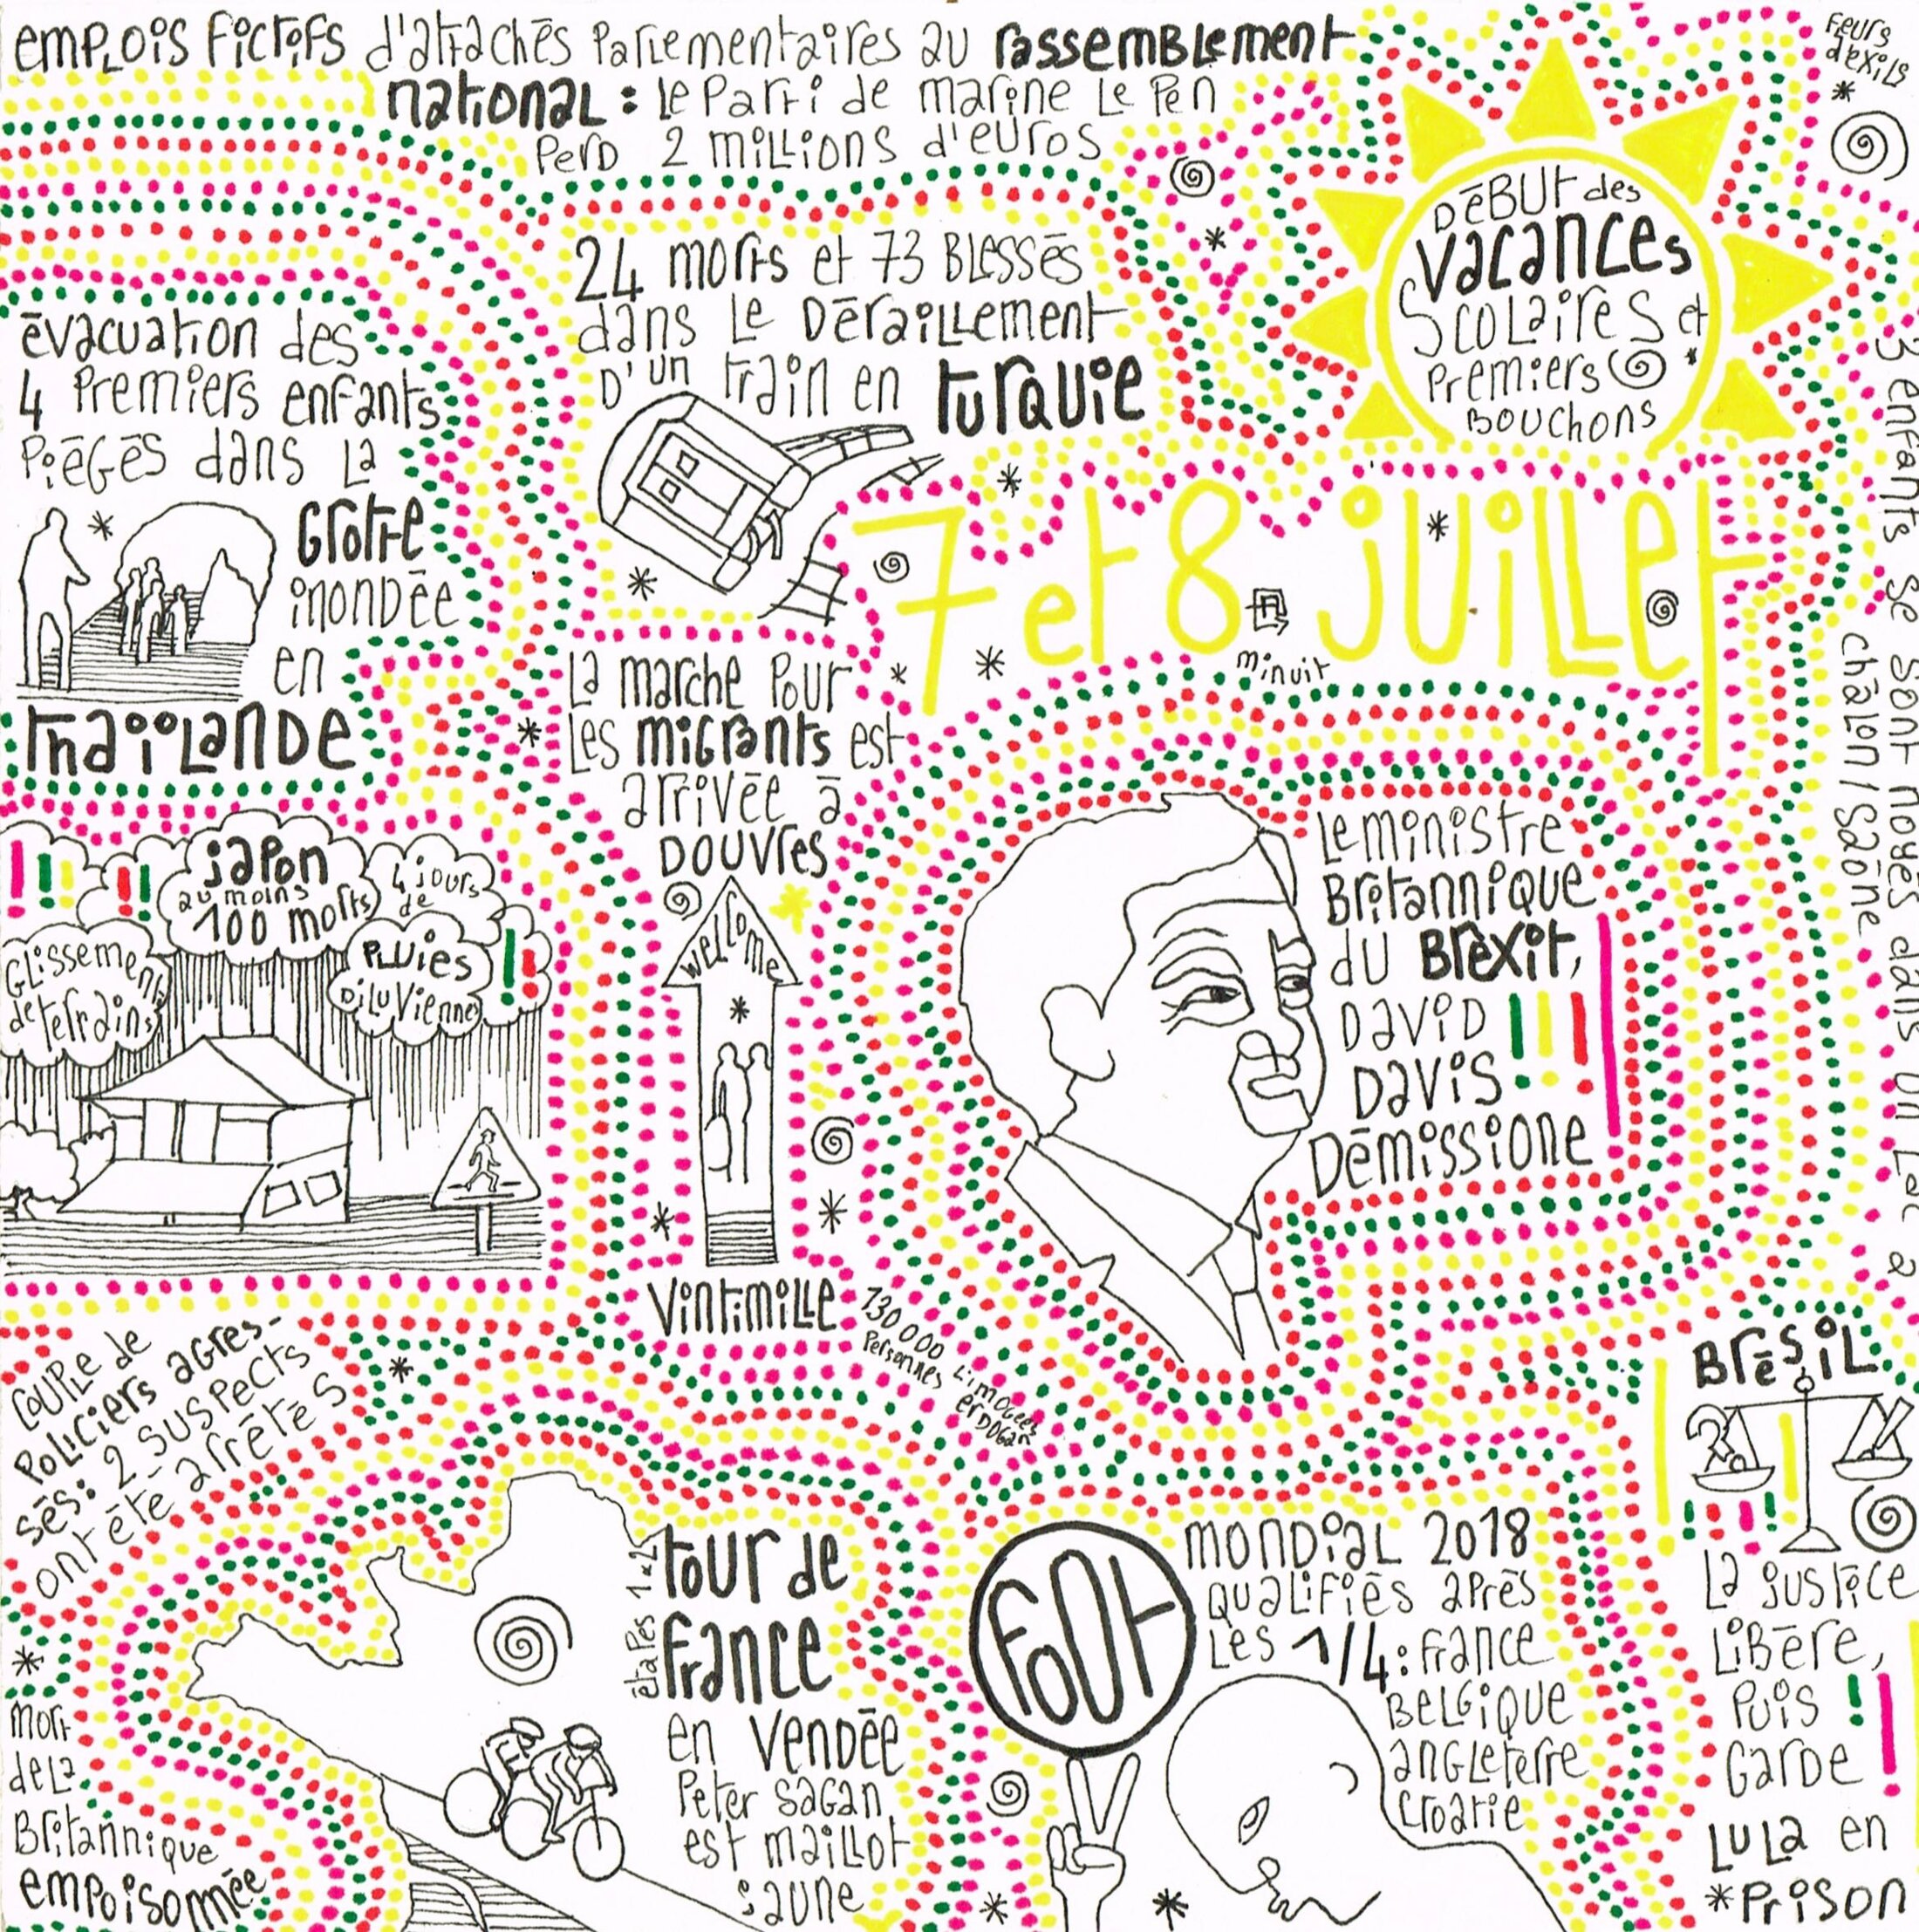 emplois fictifs d'attachés parlementaires au rassemblement
national : le parti de marine le pen
perd 2 millions d'euros
fleurs
d'exils
début des
vacances
scolaires et
premiers
bouchons
24 morts et 73 blessés
dans le déraillement
d'un train en turquie
évacuation des
4 premiers enfants
piégés dans la
grotte
inondée
en
thaïlande
7 et 8 juillet
minuit
3 enfants se sont noyés dans un lac a
chalon/saône
la marche pour
les migrants est
arrivée à
douvres
welcome
vintimille
japon
au moins
100 morts
4 jours
de
pluies
diluvienne
glissement
de terrains
le ministre
britannique
du brexit,
david
davis
démissione
130 000
personnes
limogées
erdogan
couple de
policiers agres-
sés : 2 suspects
ont été arrêtés
brésil
la justice
libère,
puis
garde
lula en
prison
étapes 1 & 2
tour de
france
en vendée
peter sagan
est maillot
jaune
foot
mondial 2018
qualifiés après
les 1/4 : france
belgique
angleterre
croatie
mort
de la
britannique
empoisonnée